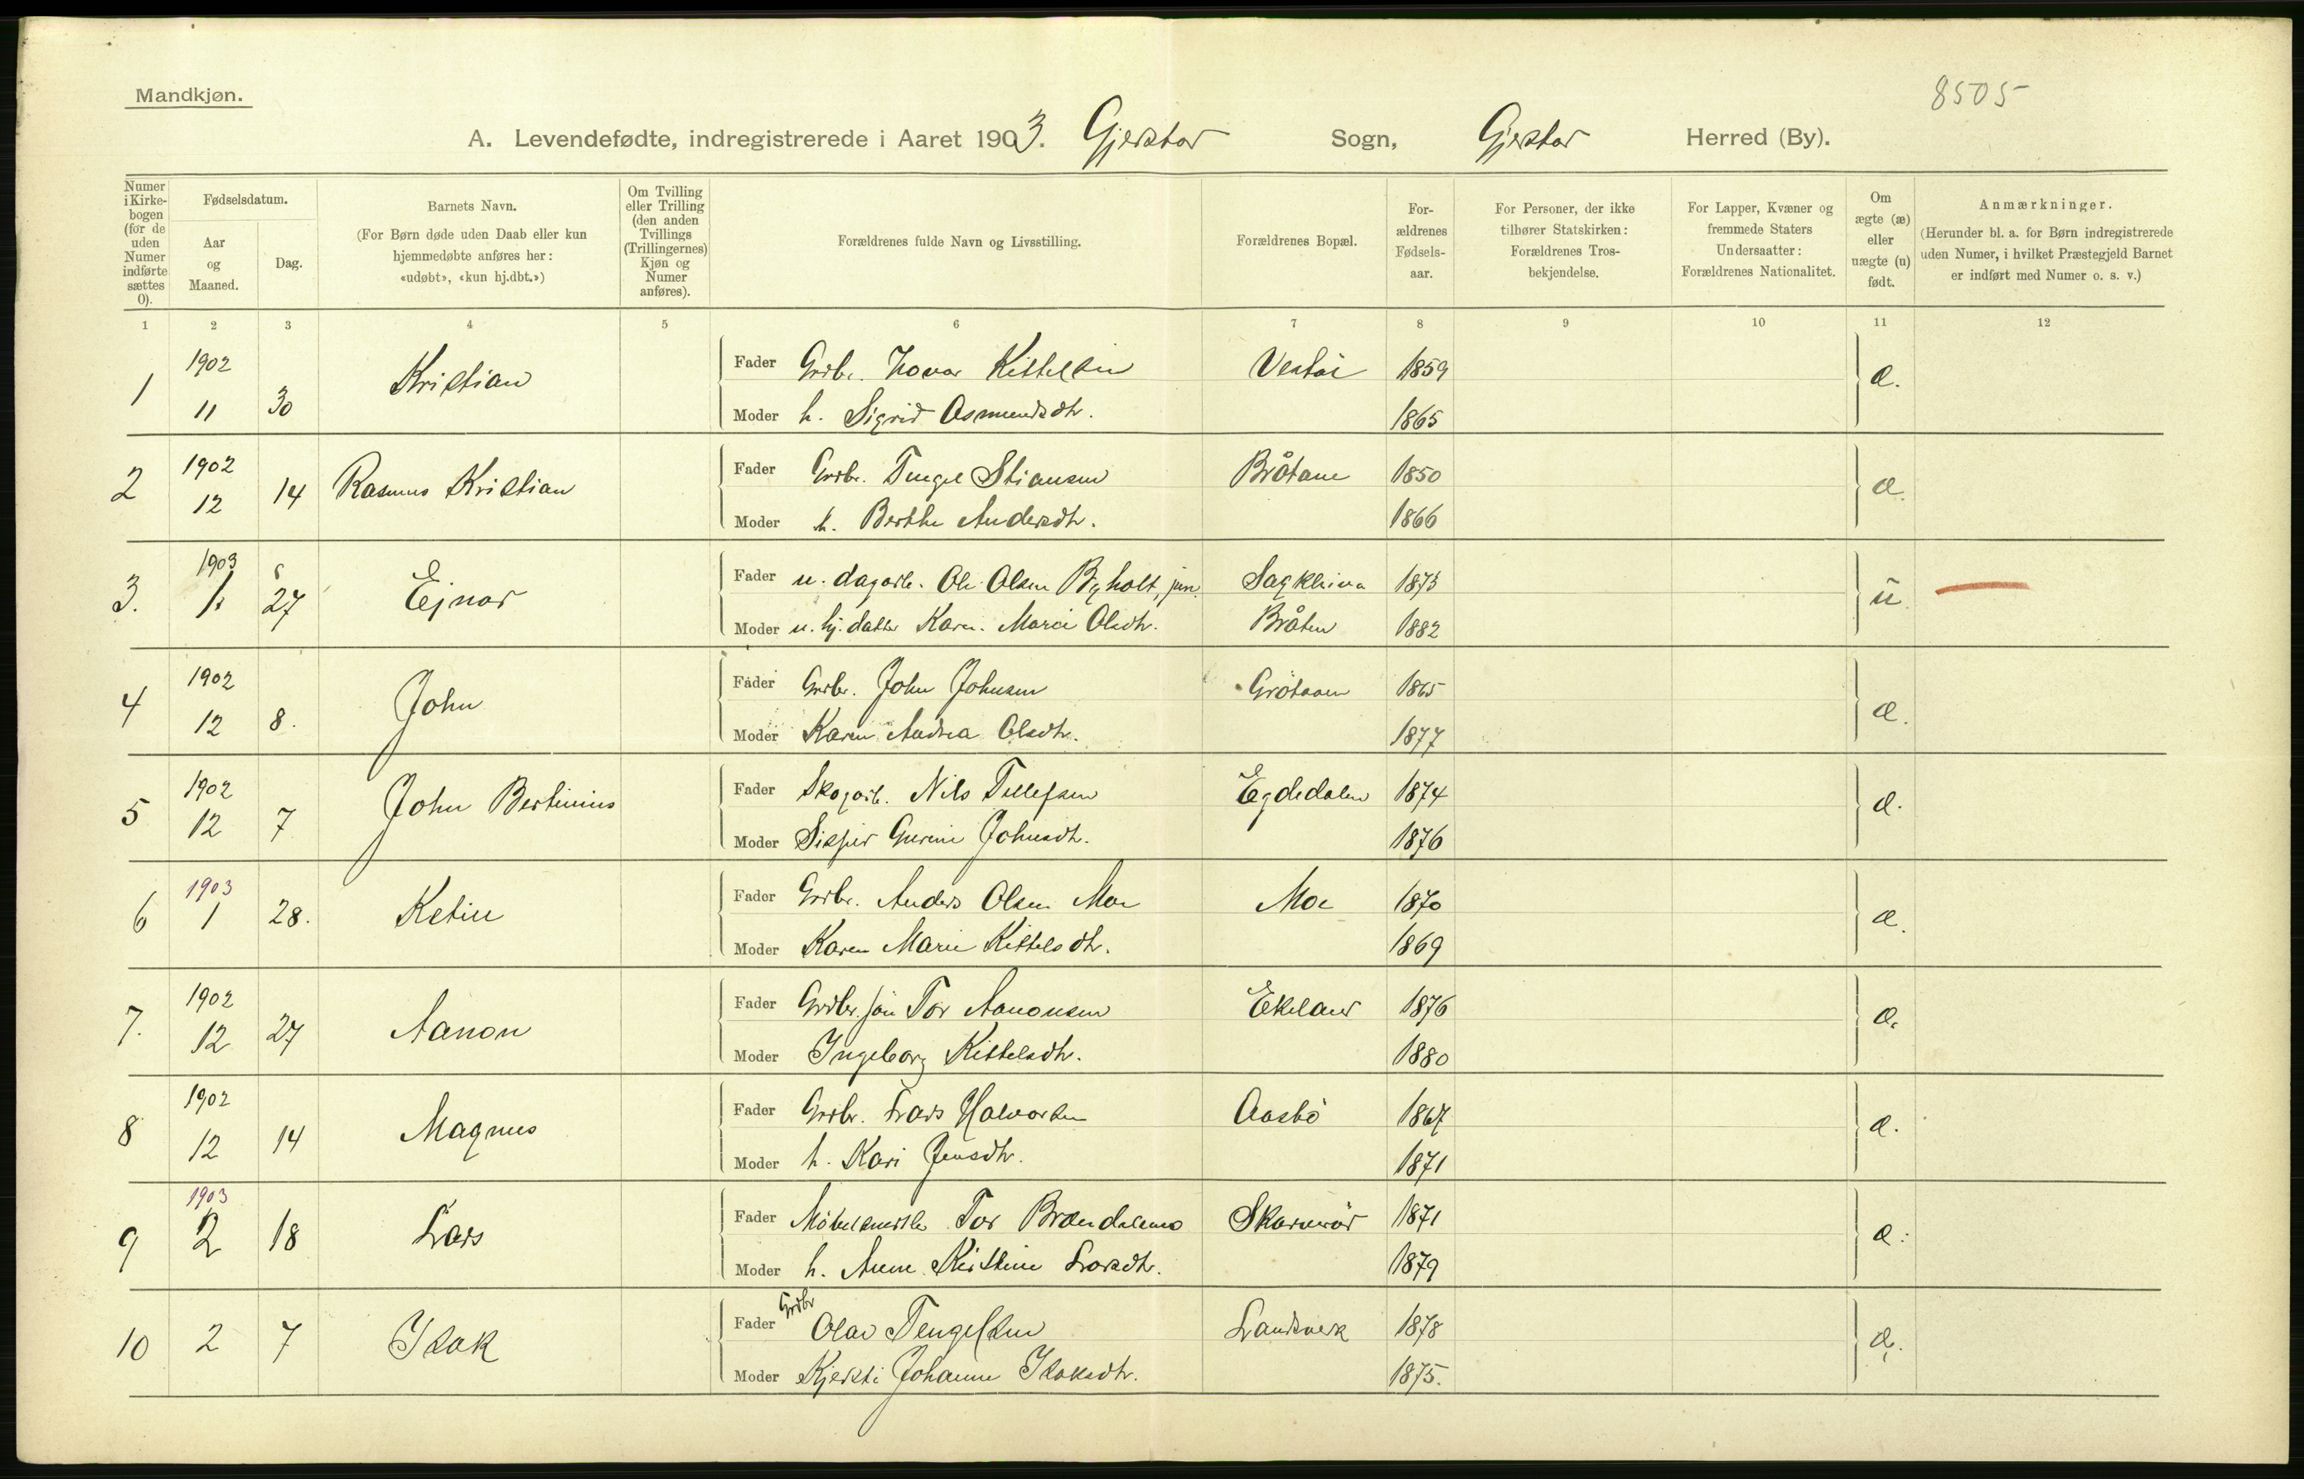 8505
Mandkjøn.
A. Levendefødte, indregistrerede i Aaret 1903. Gjerstad Sogn, Gjerstad Herred (By).
Numer i Kirke-bogen (for de uden Numer indførte sættes 0).
Fødselsdatum.
Aar og Maaned.
Dag.
Barnets Navn.
(For Børn døde uden Daab eller kun hjemmedøbte anføres her: «udøbt», «kun hj.dbt.»)
Om Tvilling eller Trilling (den anden Tvillings (Trillingernes) Kjøn og Numer anføres).
Forældrenes fulde Navn og Livsstilling.
Forældrenes Bopæl.
For-ældrenes Fødsels-aar.
For Personer, der ikke tilhører Statskirken: Forældrenes Tros-bekjendelse.
For Lapper, Kvæner og fremmede Staters Undersaatter: Forældrenes Nationalitet.
Om ægte (æ) eller uægte (u) født.
Anmærkninger.
(Herunder bl. a. for Børn indregistrerede uden Numer, i hvilket Præstegjeld Barnet er indført med Numer o. s. v.)
1 2 3 4 5 6 7 8 9 10 11 12
1 1902 11 30 Kristian Fader Grdbr. Hovar Kittelsen 1859 æ.
Moder h. Sigrid Osmundsdtr. 1865
2 1902 12 14 Rasmus Kristian Fader Grdbr. Tengel Stiansen Bråtane 1850 æ.
Moder h. Berthe Andersdtr. 1866
3. 1903 1 27 Ejnar Fader u. dagarb. Ole Olsen Byholt, jun. Sagkleiva 1873 u
Moder u. hj. datter Karen Marie Olsdtr. Bråten 1882
4 1902 12 8. John Fader Grdbr. John Johnsen 1865 æ.
Moder Karen Andrea Olsdtr. 1877
5 1902 12 7 John Bertinius Fader Skogarb. Nils Tellefsen Egdedalen 1874 æ.
Moder Gurine Johnsdtr. 1876
6 1903 1 28. Ketil Fader Grdbr. Anders Olsen Moe Moe 1870 æ.
Moder Karen Marie Kittelsdtr. 1869
7. 1902 12 27 Aanon Fader Grdbr. søn Tor Aanonsen Eikeland 1876 æ.
Moder Ingeborg Kittelsdtr. 1880
8 1902 12 14 Magnus Fader Grdbr. Lars Halvorsen Aasbö 1867 æ.
Moder h. Kari Jensdtr. 1871
9 1903 2 18 Lars Fader Möbelsnedk. Tor Brændalsmo 1871 æ.
Moder h. Anne Kirstine Larsdtr. 1879
10 2 7 Isak Fader Grdbr Olav Tengelsen Landsverk 1878 æ.
Moder Kjersti Johanne Isaksdtr. 1875.